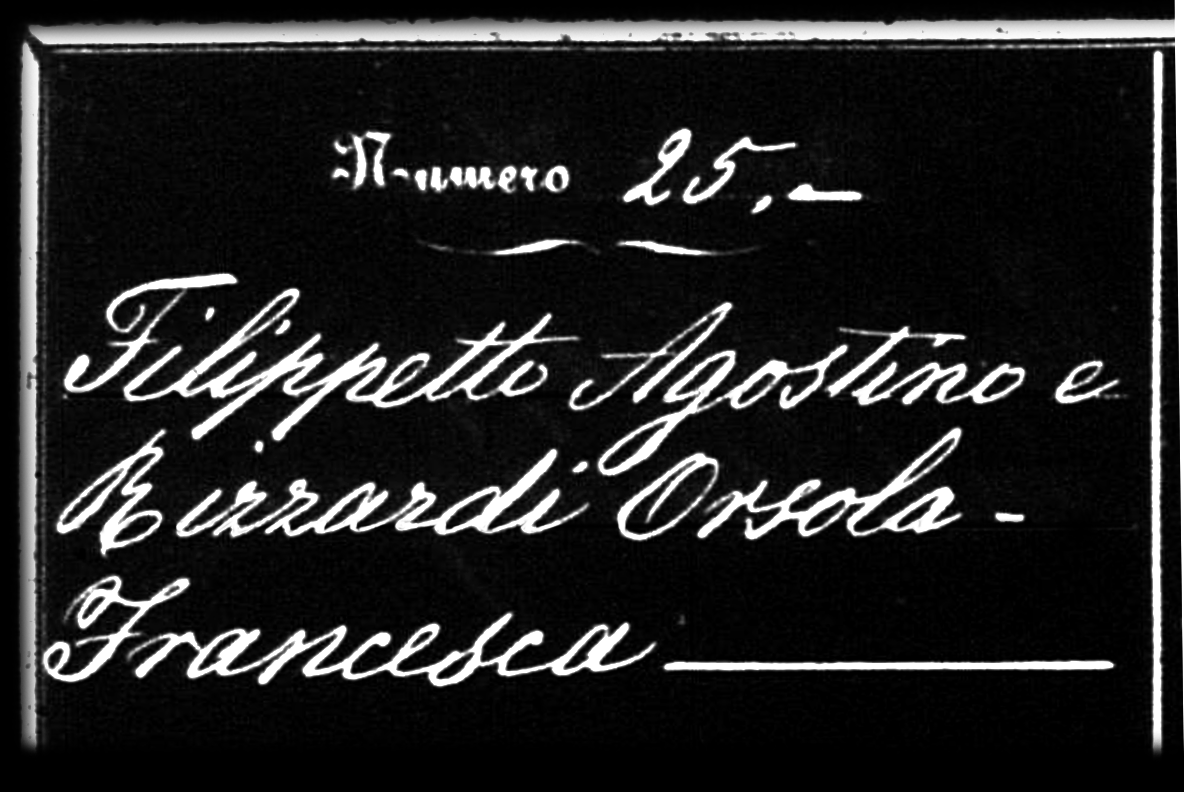 Numero 25,-
Filippetto Agostino e
Rizzardi Orsola-
Francesca